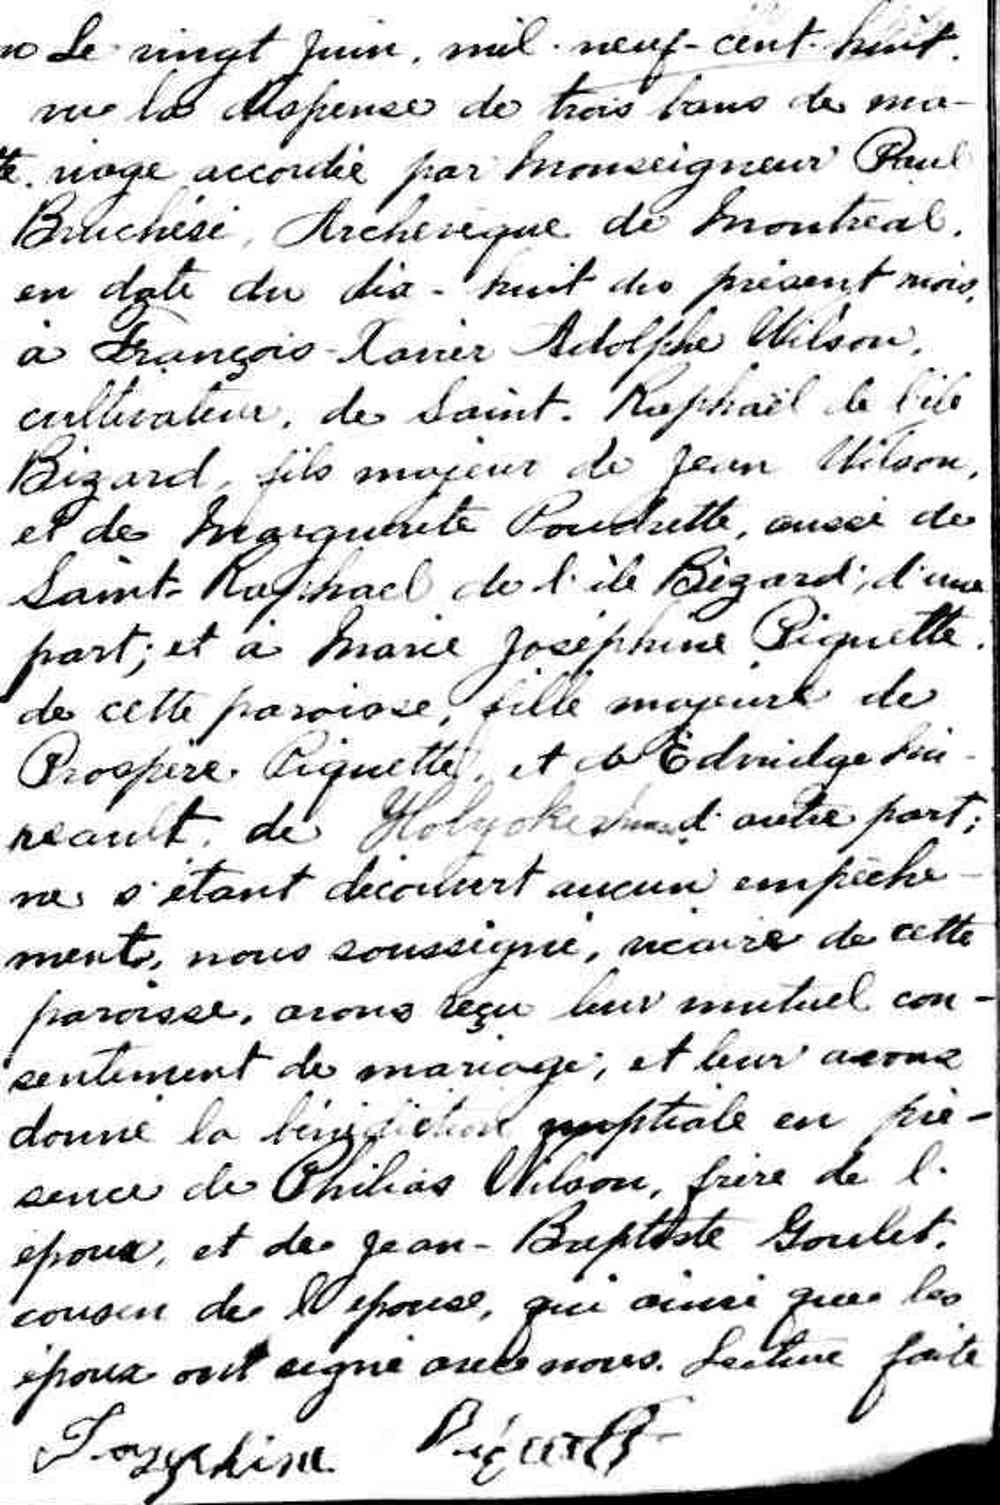 Le vingt Juin, mil-neuf-cent-huit.
vu la dispense de trois bans de ma-
riage accordée par Monseigneur Paul
Bruchési, Archevêque de Montréal,
en date du dix-huit du présent mois,
à François-Xavier Adolphe Wilson,
cultivateur, de Saint-Raphaël de l'île
Bizard, fils majeur de Jean Wilson,
et de Marguerite Poudrette, aussi de
Saint-Raphael de l'île Bizard, d'une
part; et à Marie Joséphine Piquette,
de cette paroisse, fille majeure de
Prospère Piquette, et de Edwidge
reault, de Holyoke d'autre part;
ne s'étant découvert aucun empêche-
ment, nous soussigné, vicaire de cette
paroisse, avons reçu leur mutuel con-
sentement de mariage, et leur avons
donné la bénédiction nuptiale en pré-
sence de Philias Wilson, frère de l'
époux, et de Jean-Baptiste Goulet,
cousin de l'épouse, qui ainsi que les
époux ont signé avec nous. Lecture faite
Josephine Piquette